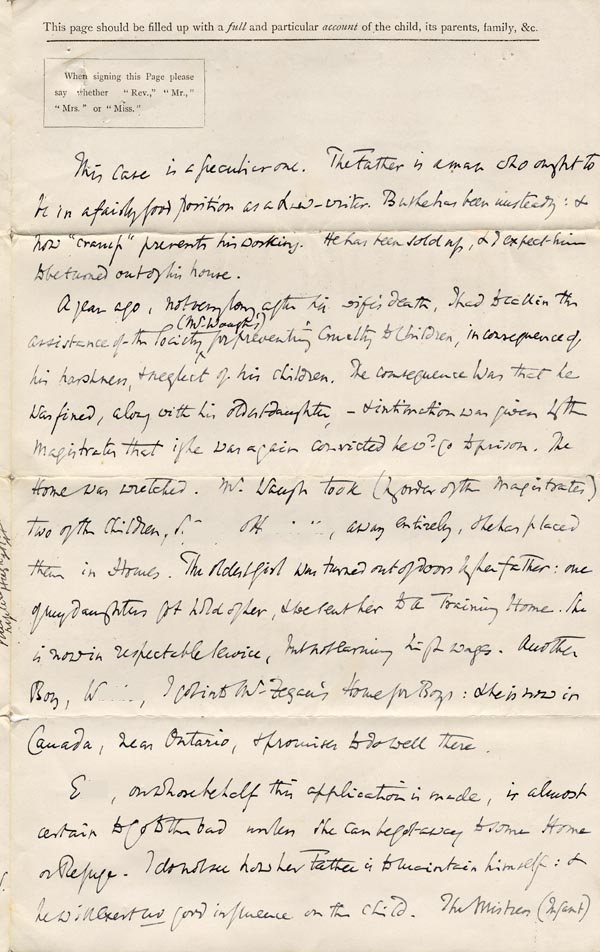 This page should be filled up with a full and particular account of the child, its parents, family, &c.
When signing this Page please
say whether "Rev.," "Mr.,"
"Mrs." or "Miss."
This case is a peculiar one. The Father is a man who ought to
be in a fairly good position as a Law-writer. But he has been unsteady: &
now "cramp" prevents his working. He has been sold up, & I expect him
to be turned out of his house.
A year ago, not very long after his wife's death, I had to call in the
(Mr. Waugh's)
assistance of the Society for preventing Cruelty to Children, in consequence of
his harshness, & neglect of his children. The consequence was that he
was fined, along with his oldest daughter, - & intimation was given by the
Magistrates that if he was again convicted he wd. go to prison. The
Home was wretched. Mr. Waugh took (by order of the Magistrates)
two of the children, away entirely, & he has placed
them in Homes. The oldest girl was turned out of doors by her father: one
of my daughters got hold of her, & we sent her to a Training Home. She
is now in respectable service, but not earning high wages. Another
Boy, W , I got into Mr. Fegan's Home for Boys: & he is now in
Canada, near Ontario, & promises to do well there.
E , on whose behalf this application is made, is almost
certain to go to the bad unless she can be got away to some Home
or Refuge. I do not see how her Father is to maintain himself: &
he will exert no good influence on the child. The Mistress (Infant)